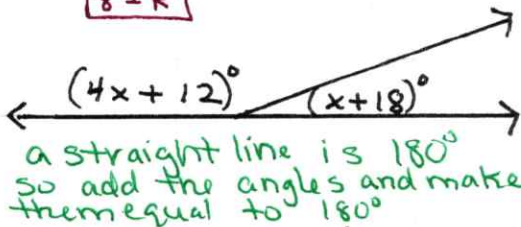 8 = k
(4x + 12)° (x+18)°
a straight line is 180°
so add the angles and make
them equal to 180°